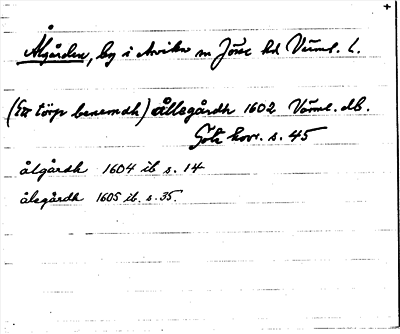 +
Ålgården, by i Arvika sn Jösse hd Värml. l.
(Ett törp benemdh) ållsgårdh 1602 Värml. db.
Göte korr. s. 45
ålgårdh 1604 ib s. 14
ålsgårdh 1605 ib. s. 35.